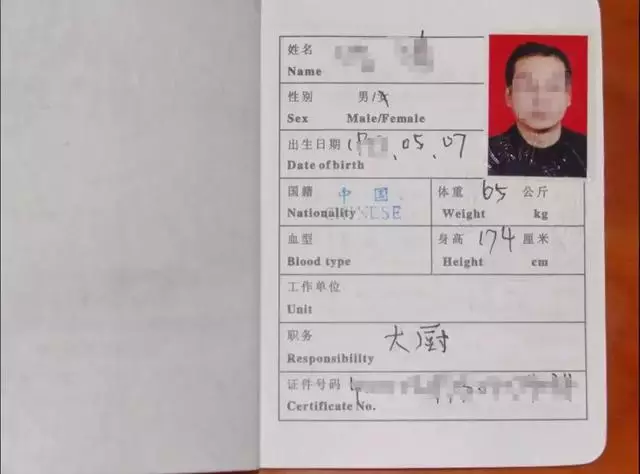 姓名
Name
性别 男/女
Sex Male/Female
出生日期 .05.07
Date of birth
国籍 中国 体重 65 公斤
Nationality CHINESE Weight kg
血型 身高 174 厘米
Blood type Height cm
工作单位
Unit
职务 大厨
Responsibility
证件号码
Certificate No.